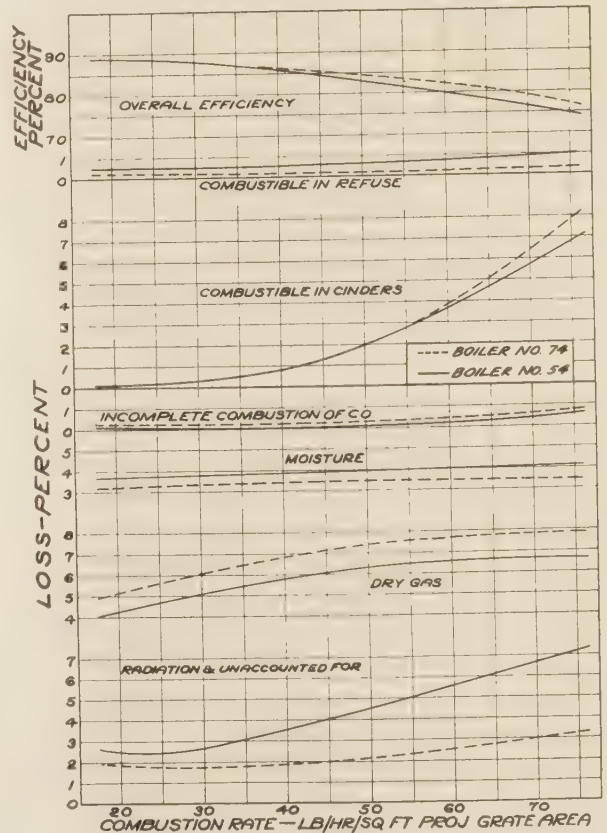 EFFICIENCY
PERCENT
90
80
70
OVERALL EFFICIENCY
1
0
COMBUSTIBLE IN REFUSE
8
7
6
5
4
3
2
1
0
COMBUSTIBLE IN CINDERS
BOILER NO. 74
BOILER NO. 54
LOSS-PERCENT
INCOMPLETE COMBUSTION OF CO
1
0
MOISTURE
5
4
3
8
7
6
5
4
DRY GAS
RADIATION & UNACCOUNTED FOR
7
6
5
4
3
2
1
0
20 30 40 50 60 70
COMBUSTION RATE — LB/HR/SQ FT PROJ GRATE AREA